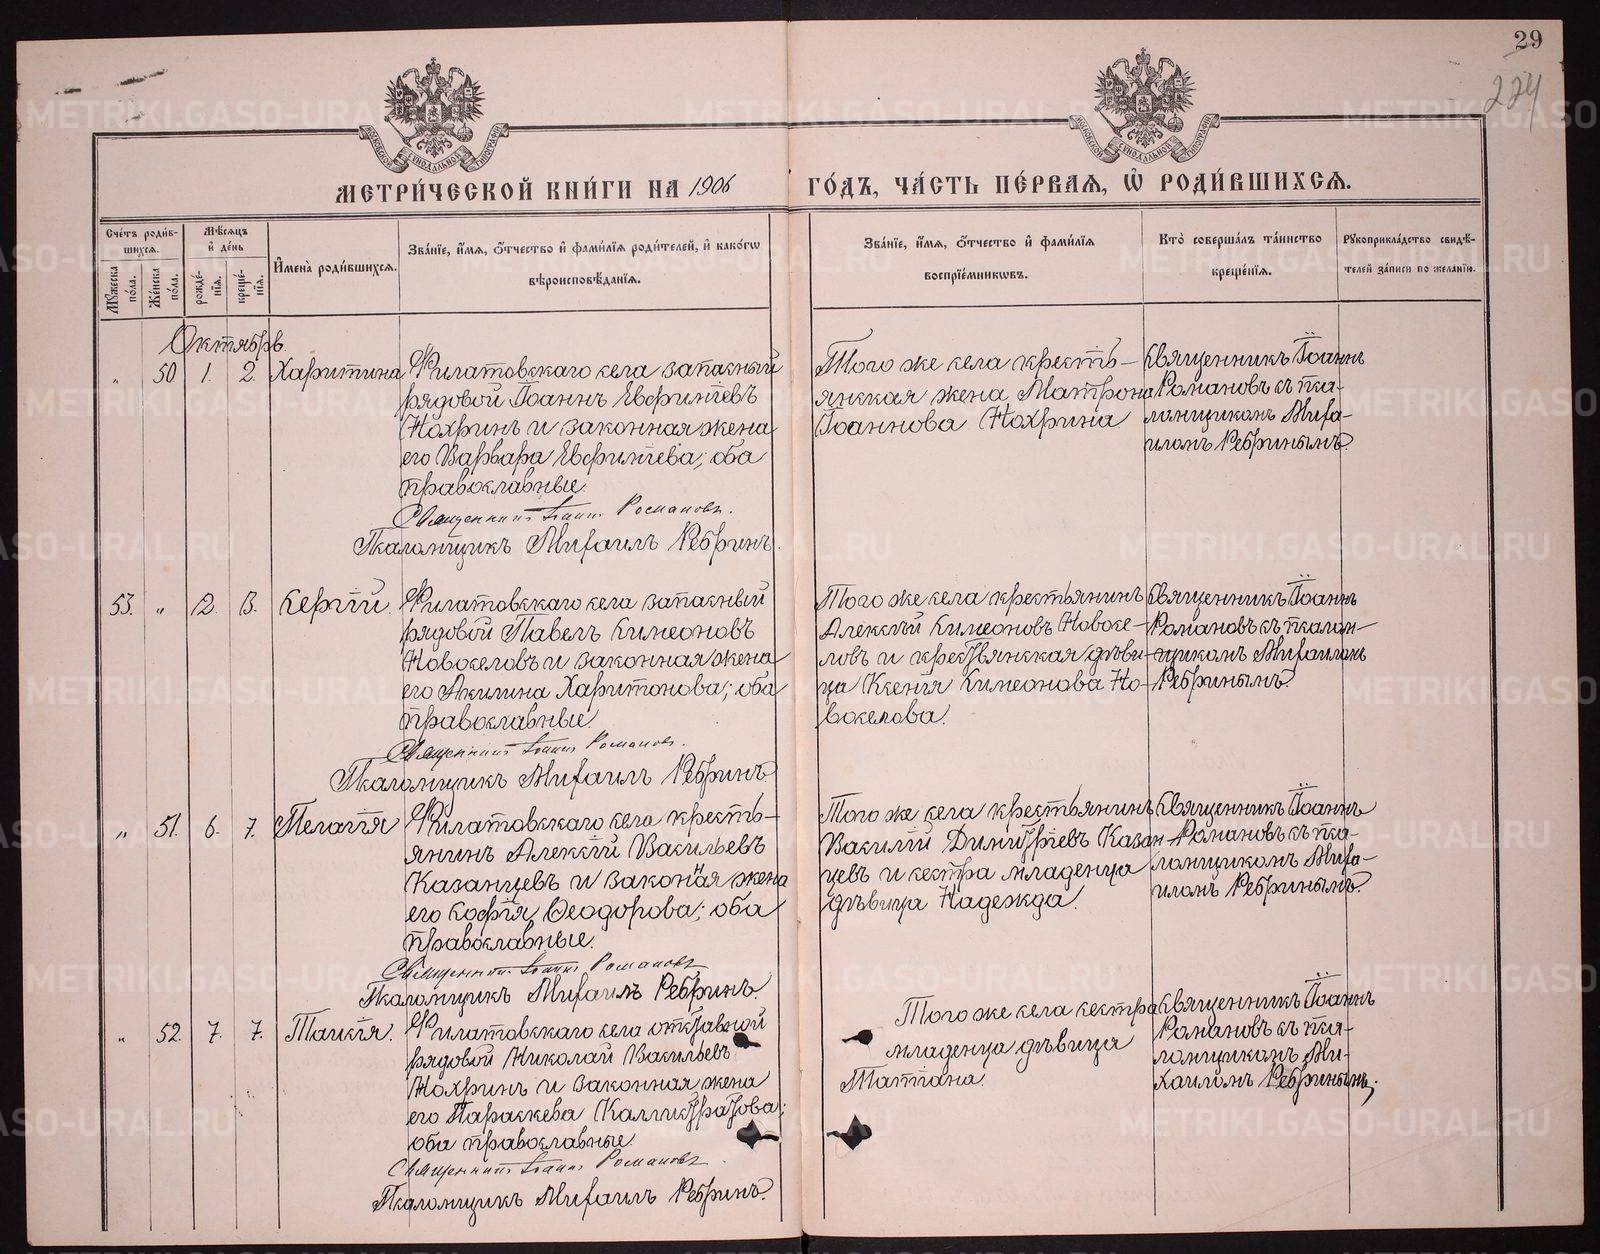 29
224
МЕТРИ́ЧЕСКОЙ КНИ́ГИ НА 1906
ГО́ДЪ, ЧА́СТЬ ПЕ́РВАѦ, Ѡ҆ РОДИ́ВШИХСѦ.
Сче́тъ роди́в-
шихсѧ.
Мꙋжеска по́ла.
Же́нска по́ла.
Мѣ́сѧцъ
и҆ де́нь
рожде́-
нїѧ.
креще́-
нїѧ.
И҆мена̀ роди́вшихсѧ.
Зва́нїе, и҆́мѧ, ѻ҆́тчество и҆ фами́лїѧ роди́телей, и҆ како́гѡ
вѣроисповѣ́данїѧ.
Зва́нїе, и҆́мѧ, ѻ҆́тчество и҆ фами́лїѧ
воспрїе́мниковъ.
Кто̀ соверша́лъ та́инство
креще́нїѧ.
Рꙋкоприкла́дство свидѣ́-
телей за́писи по жела́нїю.
Октябрь
„ 50 1. 2. Харитина
Филатовскаго села запасный
рядовой Іоаннъ Евфиміевъ
Нохринъ и законная жена
его Варвара Евфиміева; оба
православные.
Священникъ Іоаннъ Романовъ.
Псаломщикъ Михаилъ Ребринъ.
Того же села кресть-
янская жена Матрона
Іоаннова Нохрина
Священникъ Іоаннъ
Романовъ съ пса-
ломщикомъ Миха-
иломъ Ребринымъ.
53. „ 12. 13. Сергій.
Филатовскаго села запасный
рядовой Павелъ Симеоновъ
Новоселовъ и законная жена
его Акилина Харитонова; оба
православные
Священникъ Іоаннъ Романовъ.
Псаломщикъ Михаилъ Ребринъ
Того же села крестьянинъ
Алексѣй Симеоновъ Новосе-
ловъ и крестьянская дѣви-
ца Ксенія Симеонова Но-
воселова.
Священникъ Іоаннъ
Романовъ съ псалом-
щикомъ Михаиломъ
Ребринымъ.
„ 51. 6. 7. Пелагія
Филатовскаго села кресть-
янинъ Алексій Васильевъ
Казанцевъ и законная жена
его Софія Ѳеодорова; оба
православные.
Священникъ Іоаннъ Романовъ
Псаломщикъ Михаилъ Ребринъ.
Того же села крестьянинъ
Василій Димитріевъ Казан-
цевъ и сестра младенца
дѣвица Надежда.
Священникъ Іоаннъ
Романовъ съ пса-
ломщикомъ Миха-
иломъ Ребринымъ.
„ 52. 7. 7. Таисія.
Филатовскаго села отставной
рядовой Николай Васильевъ
Нохринъ и законная жена
его Параскева Каллистратова;
оба православные.
Священникъ Іоаннъ Романовъ
Псаломщикъ Михаилъ Ребринъ.
Того же села сестра
младенца дѣвица
Татіана.
Священникъ Іоаннъ
Романовъ съ пса-
ломщикомъ Ми-
хаиломъ Ребринымъ;